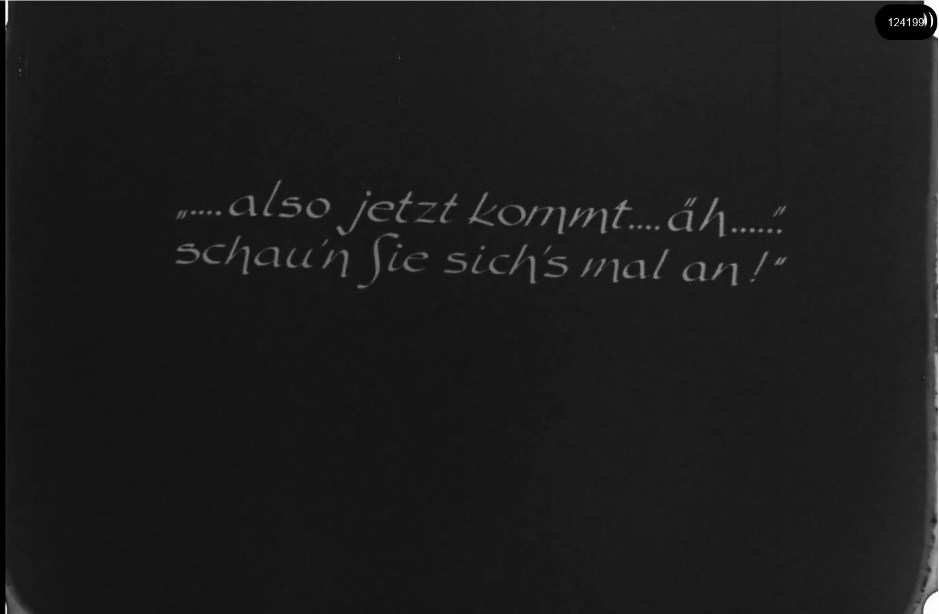 124199
„....also jetzt kommt....äh......"
schau'n Sie sich's mal an!"